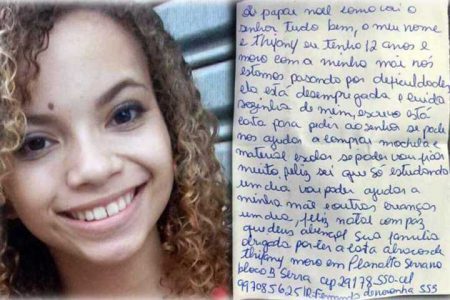 papai noel como vai o
senhor tudo bem, o meu nome
e thifany eu tenho 12 anos e
moro com a minha mãi nós
estamos pasando por deficuldades
ela está desempregada e cuida
sozinha de mem, escrevo está
cata para pedir ao senhor se pode
nos ajuda a compra mochila e
material escolar se poder vou ficar
muito feliz sei que so estudando
um dia vou poder ajudar a
minha mãe e outros crianças
um dia, feliz natal com paz
que deus abençoi sua familia
obrigada por ler a cata abracos de
thifany moro em Planalto Serrano
bloco B Serra cep 29178-550-cel